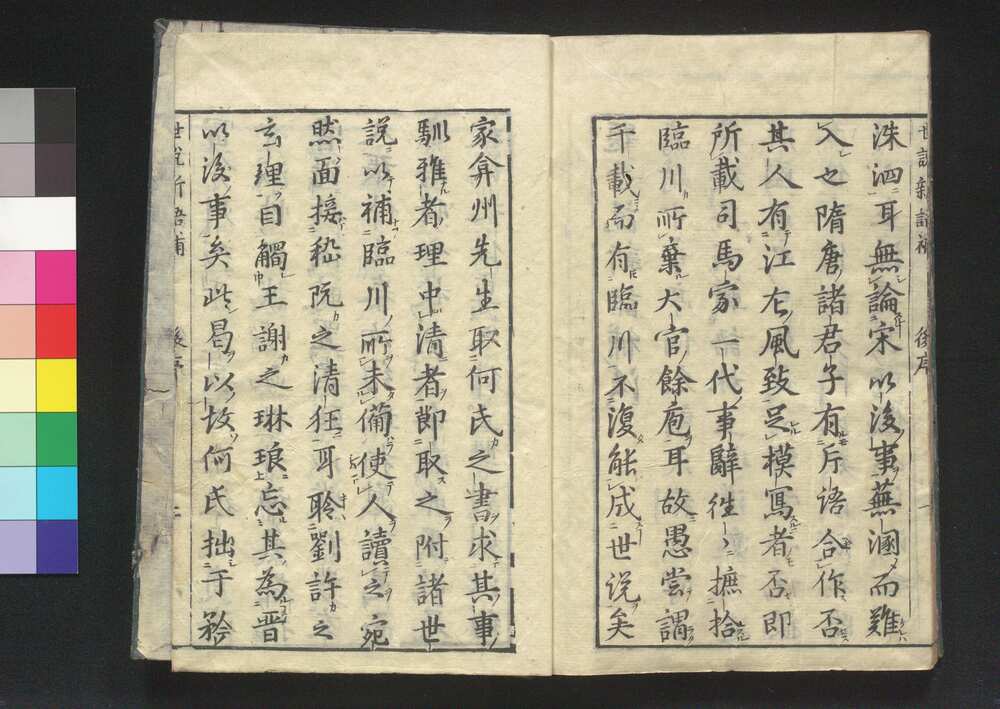 洙泗耳無論宋以後事蕪溷而難
入也隋唐諸君子有片語合作否
其人有江左風致足模寫者否即
所載司馬家一代事辭往〻摭拾
臨川所棄大官餘庖耳故愚嘗謂
千載而有臨川不復能成世説矣
家弇州先生取何氏之書求其事
馴雅者理中清者即取之附諸世
説以補臨川所未備使人讀之宛
然面接嵇阮之清狂耳聆劉許之
玄理目觸王謝之琳琅忘其為晋
以後事矣此曷以故何氏拙于矜
世説新語補
後序
一